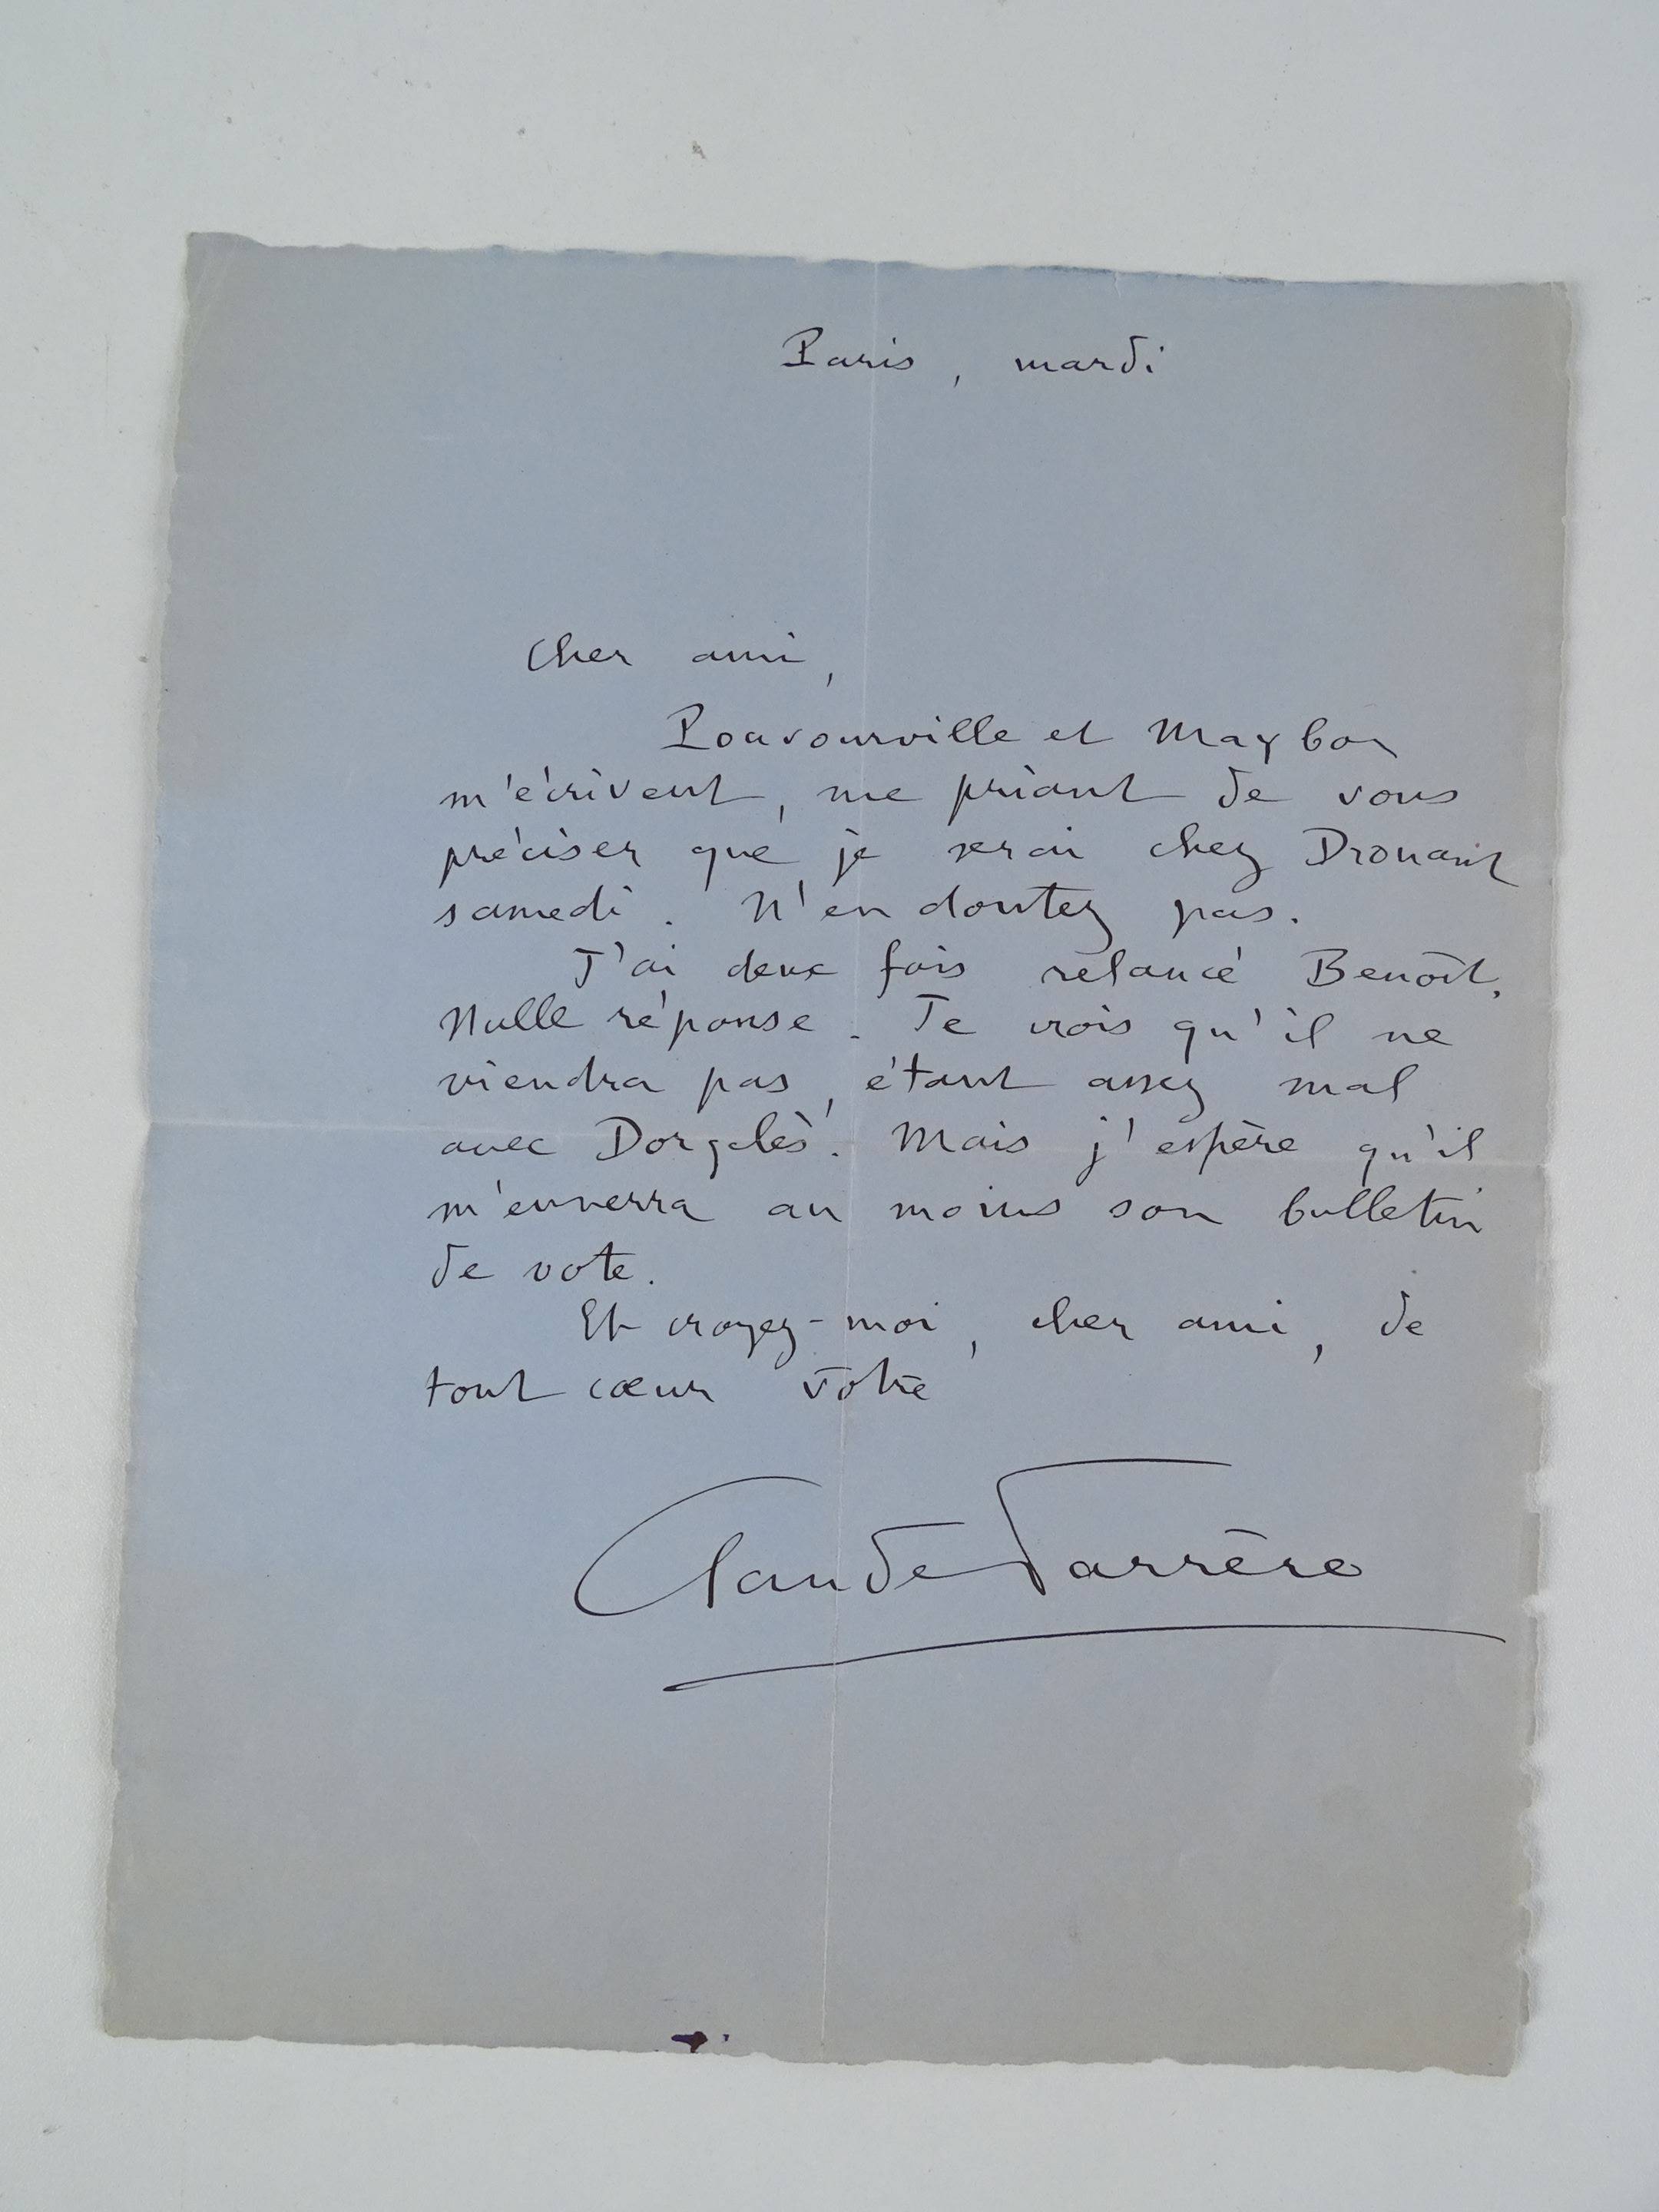 Paris, mardi
Cher ami,
Pouvourville et Maybon
m'écrivent, me priant de vous
préciser que je serai chez Drouant
samedi. N'en doutez pas.
J'ai deux fois relancé Benoît.
Nulle réponse. Je crois qu'il ne
viendra pas, étant assez mal
avec Dorgelès. Mais j'espère qu'il
m'enverra au moins son bulletin
de vote.
Et croyez-moi, cher ami, de
tout cœur vôtre
Claude Farrère